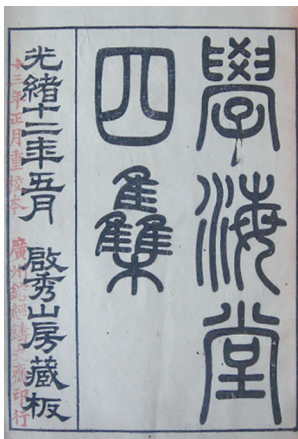 學海堂
四集
光緒十二年五月 啟秀山房藏板
十三年正月重校本 廣州 印行